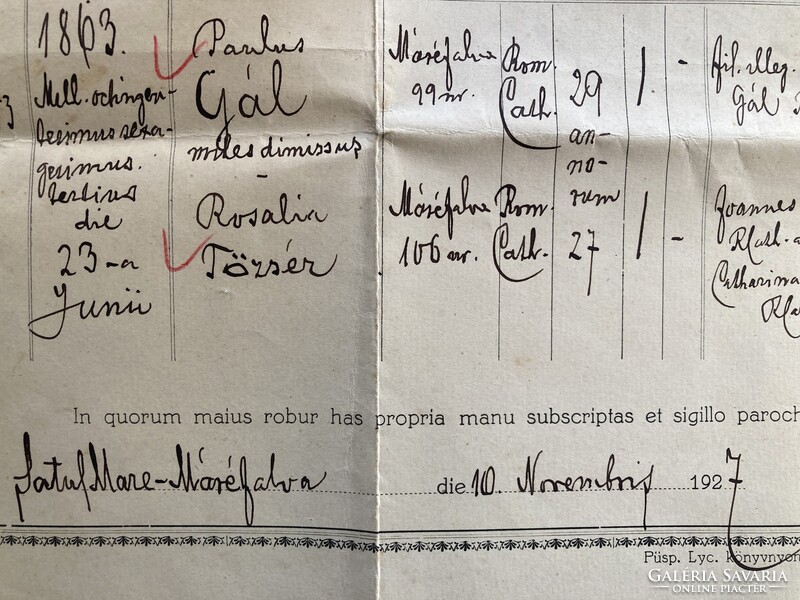 1863.
Mill. octingen-
tesimus sexa-
gesimus.
tertius
die
23-a
Junii
Paulus
Gál
miles dimissus
-
Rosalia
Tőzsér
Máréfalva
99 nr.
Rom.
Cath.
29
an-
no-
rum
/
-
fil. illeg.
Gál
Máréfalva
106 nr.
Rom.
Cath.
27
/
-
Joannes
Catharina
In quorum maius robur has propria manu subscriptas et sigillo paroch
SatulMare-Máréfalva die 10. Novembris 1927
Püsp. Lyc. könyvnyom
GALÉRIA SAVARIA
ONLINE PIACTÉR